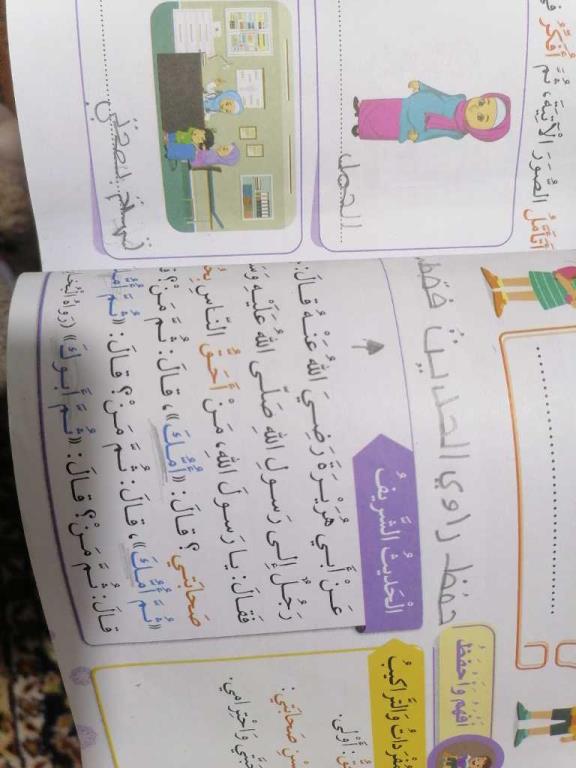 أَتَأَمَّلُ الصُّوَرَ الْآتِيَةَ، ثُمَّ أُفَكِّرُ في
الحمل
تهتم بصحتي
أَفْهَمُ وَأَحْفَظُ
حفظ راوي الحديث فقط
الْحَديثُ الشَّريفُ
عَنْ أَبي هُرَيْرَةَ رَضِيَ اللهُ عَنْهُ قالَ:
رَجُلٌ إِلى رَسولِ اللهِ صَلّى اللهُ عَلَيْهِ
فَقالَ: يا رَسولَ اللهِ، مَنْ أَحَقُّ النّاسِ
صَحابَتي؟ قالَ: «أُمُّكَ»، قالَ: ثُمَّ مَنْ؟
«ثُمَّ أُمُّكَ»، قالَ: ثُمَّ مَنْ؟ قالَ: «ثُمَّ
قالَ: ثُمَّ مَنْ؟ قالَ: «ثُمَّ أَبوكَ» (رَواهُ
وَالتَّراكيبُ
أَوْلى.
صَحابَتي:
وَاحْتِرامي.